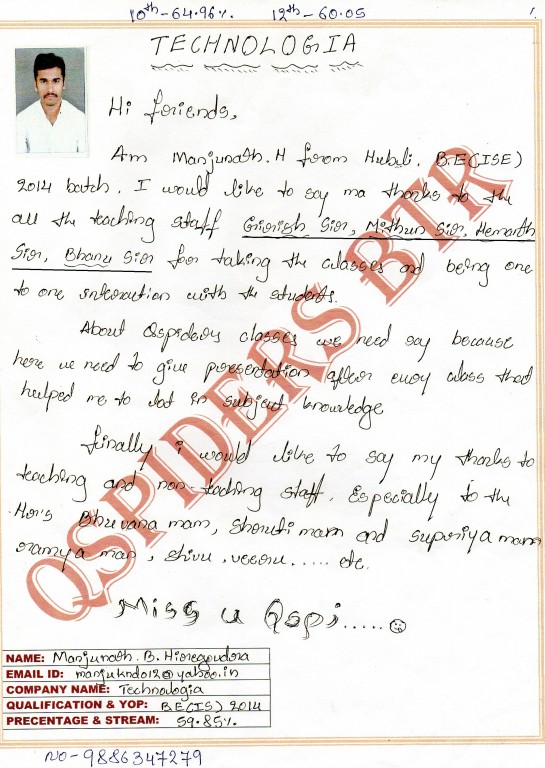 10th-64.96%. 12th-60.05
TECHNOLOGIA
Hi friends,
Am Manjunath.H from Hubli. B.E(ISE)
2014 batch. I would like to say ma thanks to the
all the teaching staff Girish Sir, Mithun Sir, Hemanth
Sir, Bhanu Sir for taking the classes and being one
to one interaction with the students.
About Qspiders classes we need say because
here we need to give presentation after every class that
helped me to lot in subject knowledge
finally i would like to say my thanks to
teaching and non-teaching staff. Especially to the
Hr's Bhuvana mam, Shruti mam and supriya mam
ramya mam, shivu, veeru ..... etc.
Miss u Qspi.....
QSPIDERS BTR
NAME: Manjunath.B.Hiregoudra
EMAIL ID: manjukndo12@yahoo.in
COMPANY NAME: Technologia
QUALIFICATION & YOP: BE(IS) 2014
PRECENTAGE & STREAM: 59.85%.
NO-9886347279